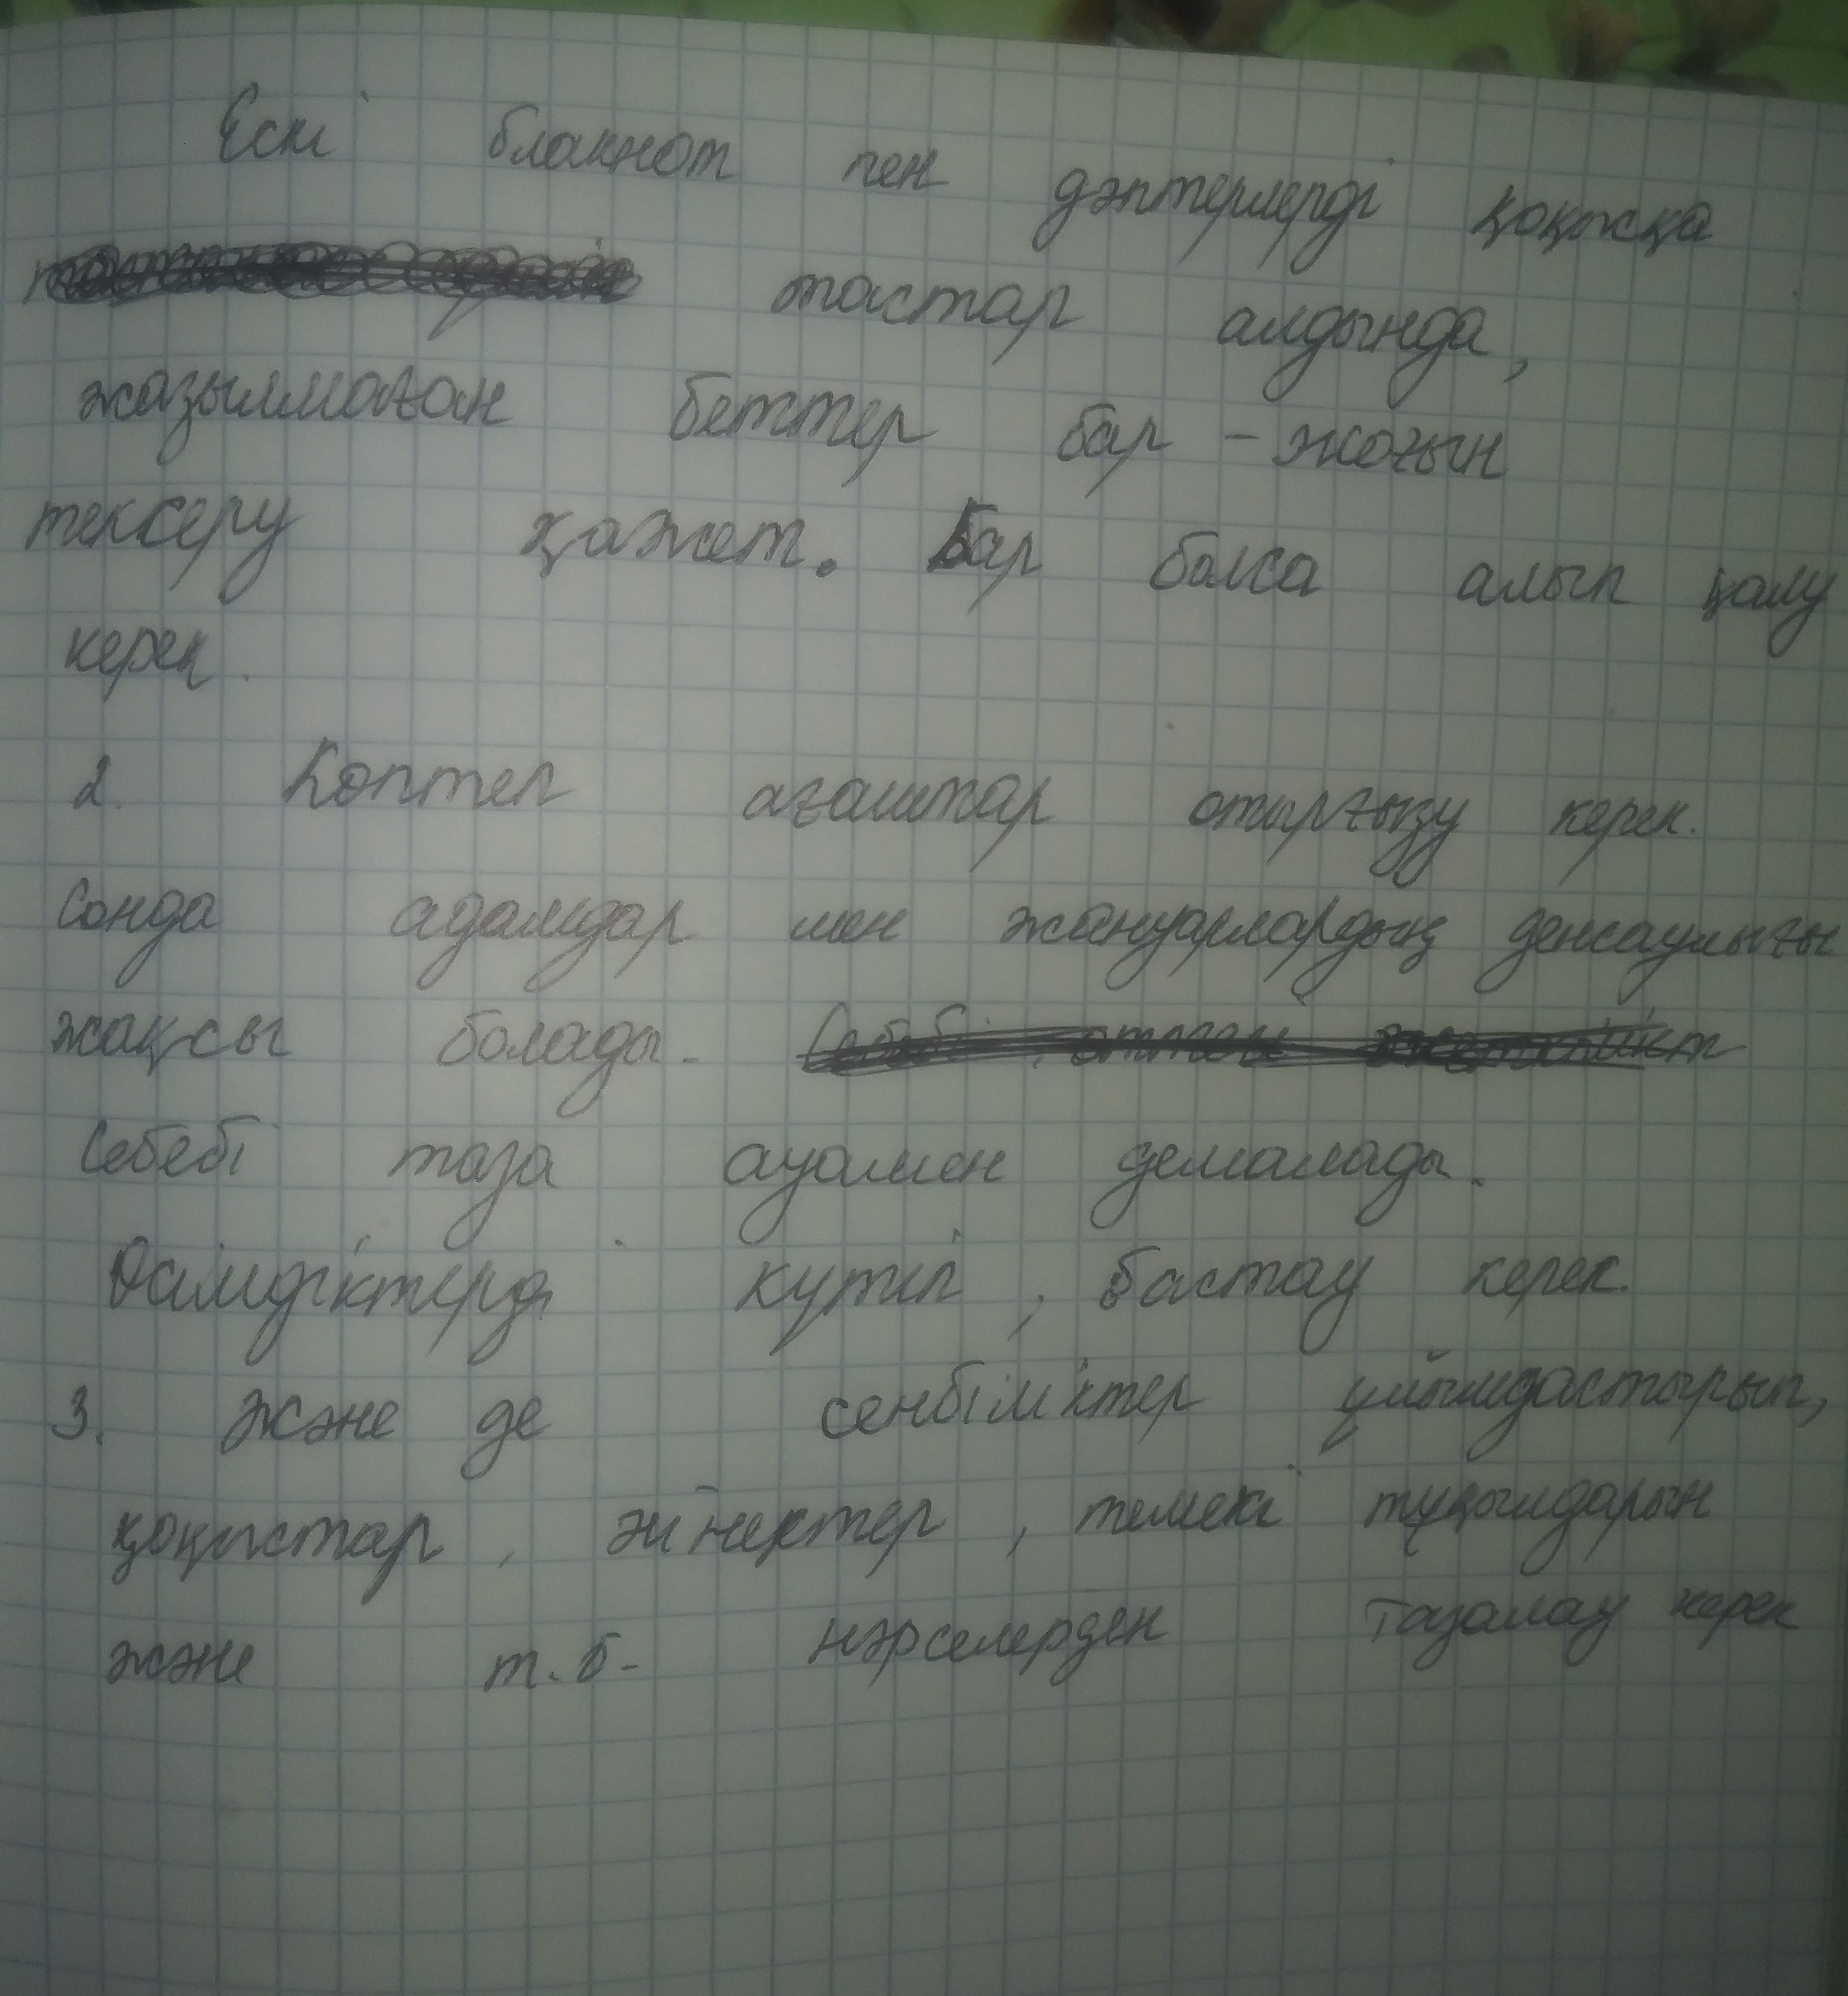 Ескі блакнот пен дәптерлерді қоқысқа
тастар алдында,
жазылмаған беттер бар - жоғын
тексеру қажет. Бар болса алып қалу
керек.
2. Көптеп ағаштар отырғызу керек.
Сонда адамдар мен жануарлардың денсаулығы
жақсы болады.
Себебі таза ауамен демалады.
Өсімдіктерді күтіп, бастау керек.
3. Және де сенбіліктер ұйымдастырып,
қоқыстар, әйнектер, темекі тұқымдарын
және т.б. нәрселерден тазалау керек